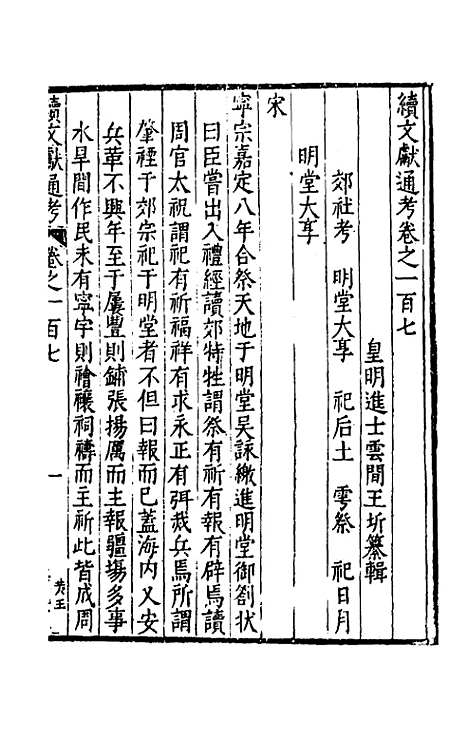 續文獻通考卷之一百七
皇明進士雲間王圻纂輯
郊社考 明堂大享 祀后土 雩祭 祀日月
明堂大享
宋
寧宗嘉定八年合祭天地于明堂吳詠繳進明堂御劄状
曰臣嘗出入禮經讀郊特牲謂祭有祈有報有辟焉讀
周官太祝謂祀有祈福祥有求永正有弭烖兵焉所謂
肇禋于郊宗祀于明堂者不但曰報而已蓋海内乂安
兵革不興年至于屢豐則鋪張揚厲而主報疆埸多事
水旱間作民未有寧宇則禬禳祠禱而主祈此皆成周
續文獻通考 卷之一百七 一